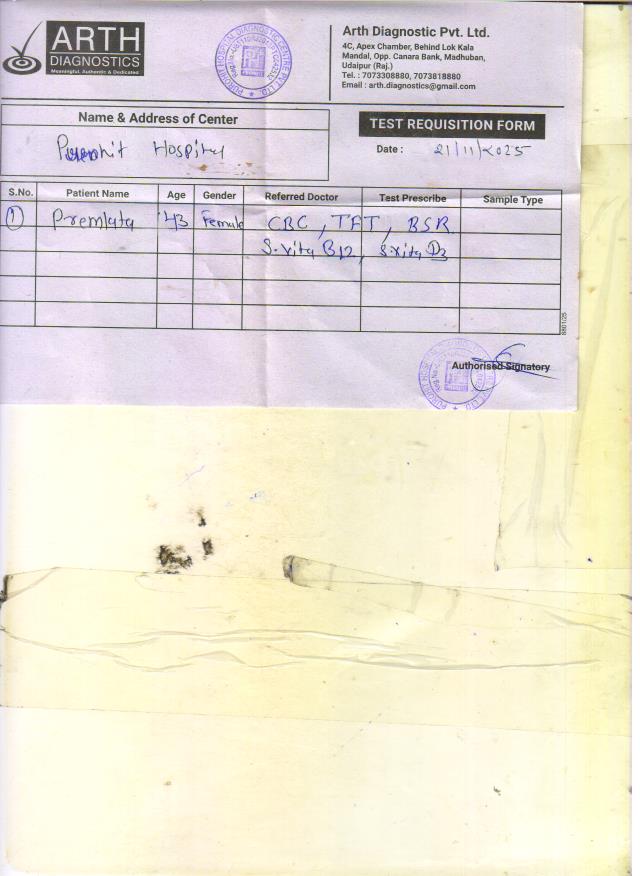 ARTH
DIAGNOSTICS
Meaningful, Authentic & Dedicated
Arth Diagnostic Pvt. Ltd.
4C, Apex Chamber, Behind Lok Kala
Mandal, Opp. Canara Bank, Madhuban,
Udaipur (Raj.)
Tel. : 7073308880, 7073818880
Email : arth.diagnostics@gmail.com
Name & Address of Center
Purohit Hospital
TEST REQUISITION FORM
Date : 21/11/2025
S.No. Patient Name Age Gender Referred Doctor Test Prescribe Sample Type
1 Premlata 43 Female CBC, TFT, BSR
S.vita B12, S.vita D3
8801/25
Authorised Signatory